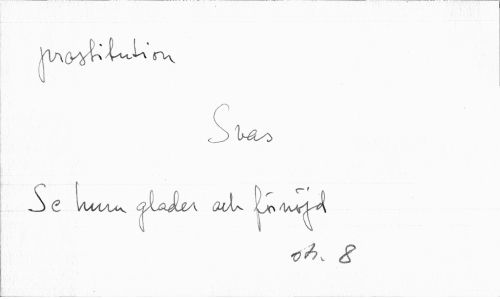 prostitution
Svas
Se huru glader och förnöjd
str. 8